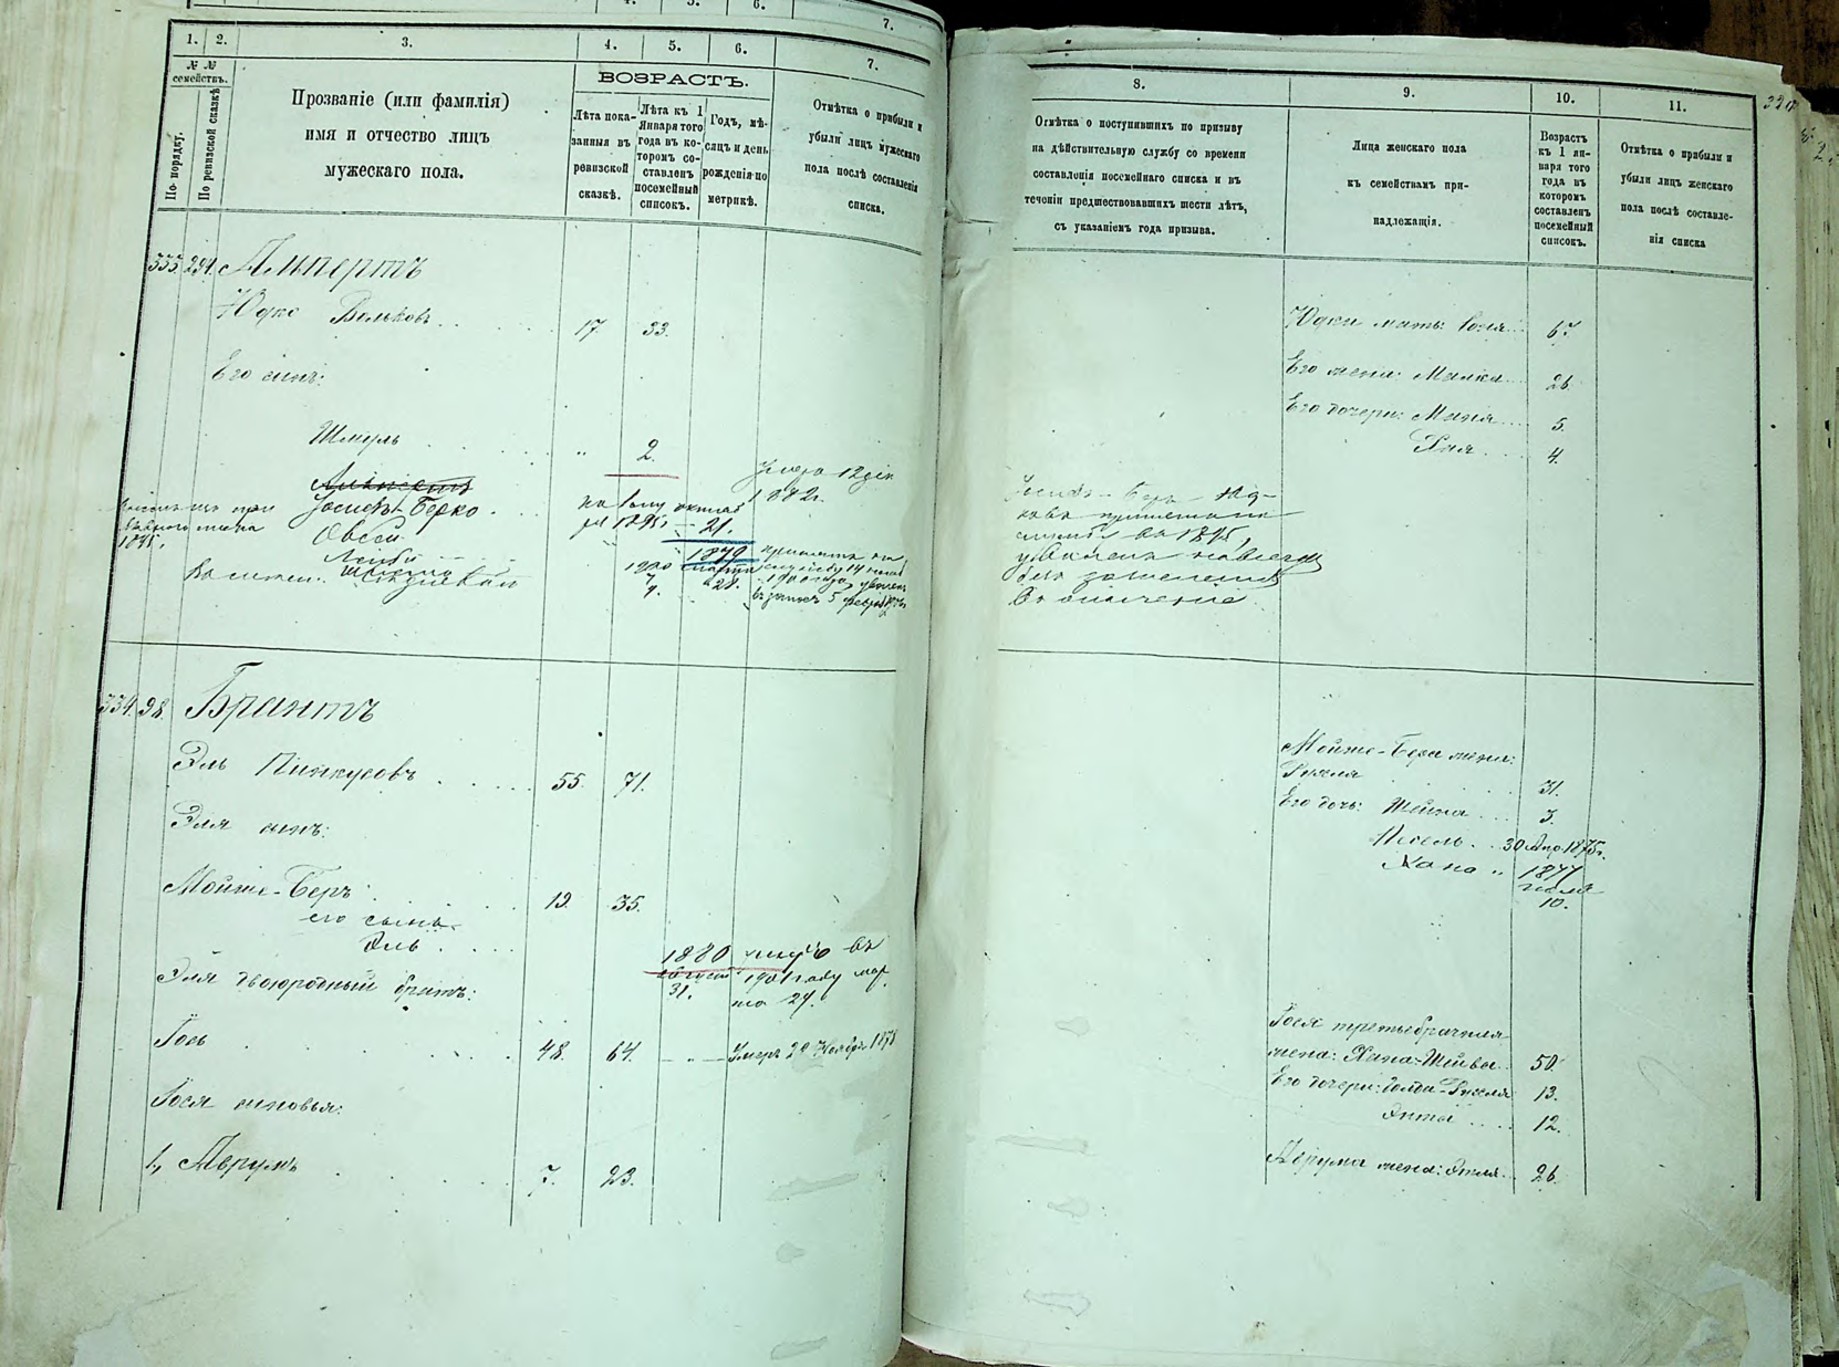 4. 5. 6. 7.
1. 2. 3. 4. 5. 6. 7.
№ № семействъ.
По порядку.
По ревизской сказкѣ
Прозваніе (или фамилія)
имя и отчество лицъ
мужескаго пола.
ВОЗРАСТЪ.
Лѣта пока-
занныя въ
ревизской
сказкѣ.
Лѣта къ 1
Января того
года въ ко-
торомъ со-
ставленъ
посемейный
списокъ.
Годъ, мѣ-
сяцъ и день
рожденія по
метрикѣ.
Отмѣтка о прибыли и
убыли лицъ мужескаго
пола послѣ составленія
списка.
333. 294. Альпертъ
Юдко Вольковъ 17 33.
Его сынъ:
Шмуль " 2.
Умеръ 12 дек
1882 г.
Іосифъ-Берко
на 1895 г. 21.
Овсей
Лейба
1879
марта
28.
1900
принятъ на
службу 14 нояб
334. 98. Брантъ
Эль Пинкусовъ 55. 71.
Эля сынъ:
Мойше-Беръ 19. 35.
его сынъ
Эль
1880
августа
31.
въ
1901 году мар
та 24.
Эля двоюродный братъ:
Іось 48. 64. Умеръ 29 Ноября 1878
Іося сыновья:
1, Аврумъ 7. 23.
8. 9. 10. 11.
Отмѣтка о поступившихъ по призыву
на дѣйствительную службу со времени
составленія посемейнаго списка и въ
теченіи предшествовавшихъ шести лѣтъ,
съ указаніемъ года призыва.
Лица женскаго пола
къ семействамъ при-
надлежащія.
Возрастъ
къ 1 ян-
варя того
года въ
которомъ
составленъ
посемейный
списокъ.
Отмѣтка о прибыли и
убыли лицъ женскаго
пола послѣ составле-
нія списка
Юдки мать: 67.
Его жена: Малка 26.
Его дочери: Маня 5.
Хня 4.
Іосифъ-Берко Юд-
ковъ
въ 1895,
уволенъ навсегда
для зачисленія
въ ополченіе.
Мойше-Бера жена:
Рухля 31.
Его дочь: Шейна 3.
Песель 30 Апр 1875 г.
Хана " 1877
10.
Іося третьебрачная
жена: Хана-Шейва 50.
Его дочери: Голда-Рухля 13.
Энта 12.
Аврума жена: Этля 26.